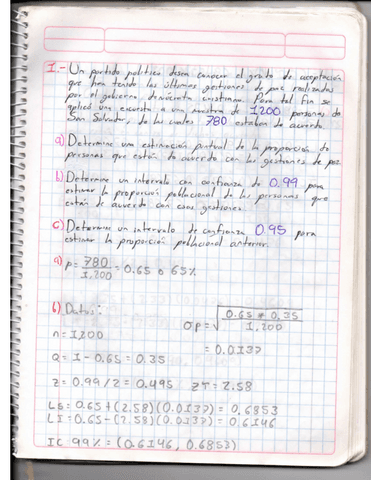 1.- Un partido político desea conocer el grado de aceptación
que han tenido las últimas gestiones de paz realizadas
por el gobierno demócrata cristiano. Para tal fin se
aplicó una encuesta a una muestra de 1200 personas de
San Salvador, de las cuales 780 estaban de acuerdo.
a) Determine una estimación puntual de la proporción de
personas que están de acuerdo con las gestiones de paz.
b) Determine un intervalo con confianza de 0.99 para
estimar la proporción poblacional de las personas que
están de acuerdo con esas gestiones.
c) Determine un intervalo de confianza 0.95 para
estimar la proporción poblacional anterior.
a) p = 780/1,200 = 0.65 o 65%
b) Datos:
σp = √(0.65 * 0.35 / 1,200)
n = 1,200
= 0.0137
Q = 1 - 0.65 = 0.35
z = 0.99/2 = 0.495 zT = 2.58
LS = 0.65 + (2.58)(0.0137) = 0.6853
LI = 0.65 - (2.58)(0.0137) = 0.6146
IC 99% = (0.6146, 0.6853)